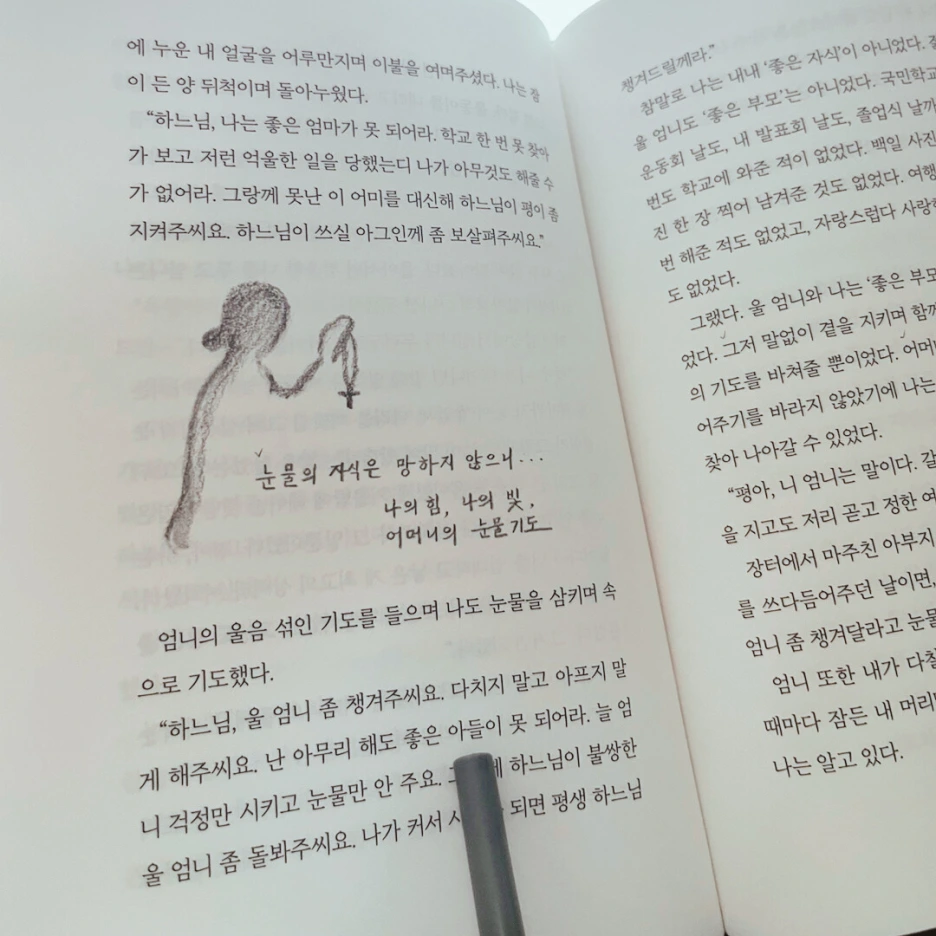 에 누운 내 얼굴을 어루만지며 이불을 여며주셨다. 나는 잠
이 든 양 뒤척이며 돌아누웠다.
“하느님, 나는 좋은 엄마가 못 되어라. 학교 한 번 못 찾아
가 보고 저런 억울한 일을 당했는디 나가 아무것도 해줄 수
가 없어라. 그랑께 못난 이 어미를 대신해 하느님이 평이 좀
지켜주씨요. 하느님이 쓰실 아그인께 좀 보살펴주씨요.”
눈물의 자식은 망하지 않으니...
나의 힘, 나의 빛,
어머니의 눈물기도
엄니의 울음 섞인 기도를 들으며 나도 눈물을 삼키며 속
으로 기도했다.
“하느님, 울 엄니 좀 챙겨주씨요. 다치지 말고 아프지 말
게 해주씨요. 난 아무리 해도 좋은 아들이 못 되어라. 늘 엄
니 걱정만 시키고 눈물만 안 주요. 하느님이 불쌍한
울 엄니 좀 돌봐주씨요. 나가 커서 되면 평생 하느님
챙겨드릴께라.”
참말로 나는 내내 ‘좋은 자식’이 아니었다.
울 엄니도 ‘좋은 부모’는 아니었다. 국민학교
운동회 날도, 내 발표회 날도, 졸업식 날까
번도 학교에 와준 적이 없었다. 백일 사진
진 한 장 찍어 남겨준 것도 없었다. 여행
번 해준 적도 없었고, 자랑스럽다 사랑하
도 없었다.
그랬다. 울 엄니와 나는 ‘좋은 부모
었다. 그저 말없이 곁을 지키며 함께
의 기도를 바쳐줄 뿐이었다. 어머
어주기를 바라지 않았기에 나는
찾아 나아갈 수 있었다.
“평아, 니 엄니는 말이다. 갈
을 지고도 저리 곧고 정한 여
장터에서 마주친 아부지
를 쓰다듬어주던 날이면,
엄니 좀 챙겨달라고 눈물
엄니 또한 내가 다칠
때마다 잠든 내 머리
나는 알고 있다.